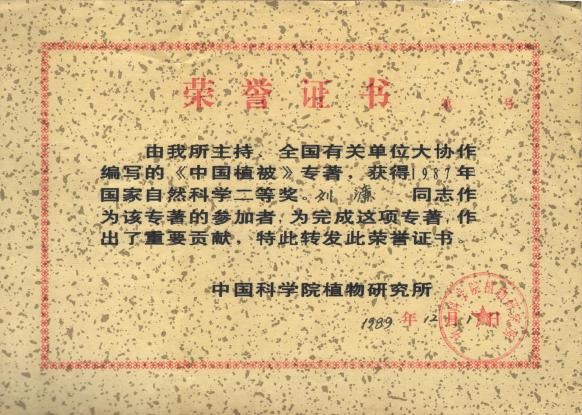 荣誉证书
第 号
由我所主持、全国有关单位大协作
编写的《中国植被》专著，获得1987年
国家自然科学二等奖。刘濂 同志作
为该专著的参加者，为完成这项专著，作
出了重要贡献，特此转发此荣誉证书。
中国科学院植物研究所
1989年12月 日